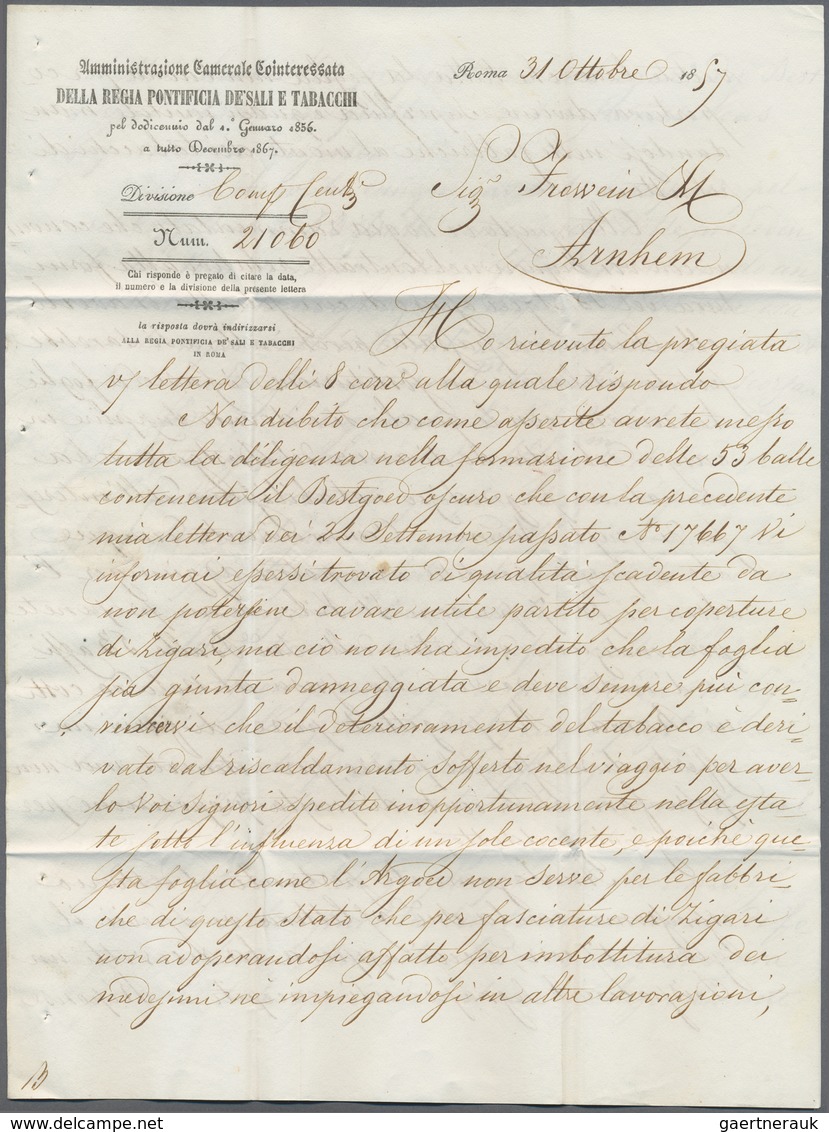 Amministrazione Camerale Cointeressata
DELLA REGIA PONTIFICIA DE' SALI E TABACCHI
pel dodicennio dal 1.° Gennaro 1856.
a tutto Decembre 1867.
Divisione Comp Cent
Num. 21060
Chi risponde è pregato di citare la data,
il numero e la divisione della presente lettera
la risposta dovrà indirizzarsi
ALLA REGIA PONTIFICIA DE' SALI E TABACCHI
IN ROMA
Roma 31 Ottobre 1857
Sig Frowein
Arnhem
Ho ricevuto la pregiata
v/ lettera delli 8 corr.e alla quale rispondo
Non dubito che come asserite avrete messo
tutta la diligenza nella formazione delle 53 balle
contenenti il Bestgoed oscuro che con la precedente
mia lettera dei 24 Settembre passato N° 17667 vi
informai essersi trovato di qualità scadente da
non potersene cavare utile partito per coperture
di Zigari, ma ciò non ha impedito che la foglia
sia giunta danneggiata e deve sempre più con-
vincervi che il deterioramento del tabacco è deri-
vato dal riscaldamento sofferto nel viaggio per aver-
lo voi Signori spedito inopportunamente nella esta-
te sotto l'influenza di un sole cocente, e poichè que-
sta foglia come l'Argoed non serve per le fabbri-
che di questo Stato che per fasciature di Zigari
non adoperandosi affatto per imbottitura dei
medesimi nè impiegandosi in altre lavorazioni,
gaertnerauk